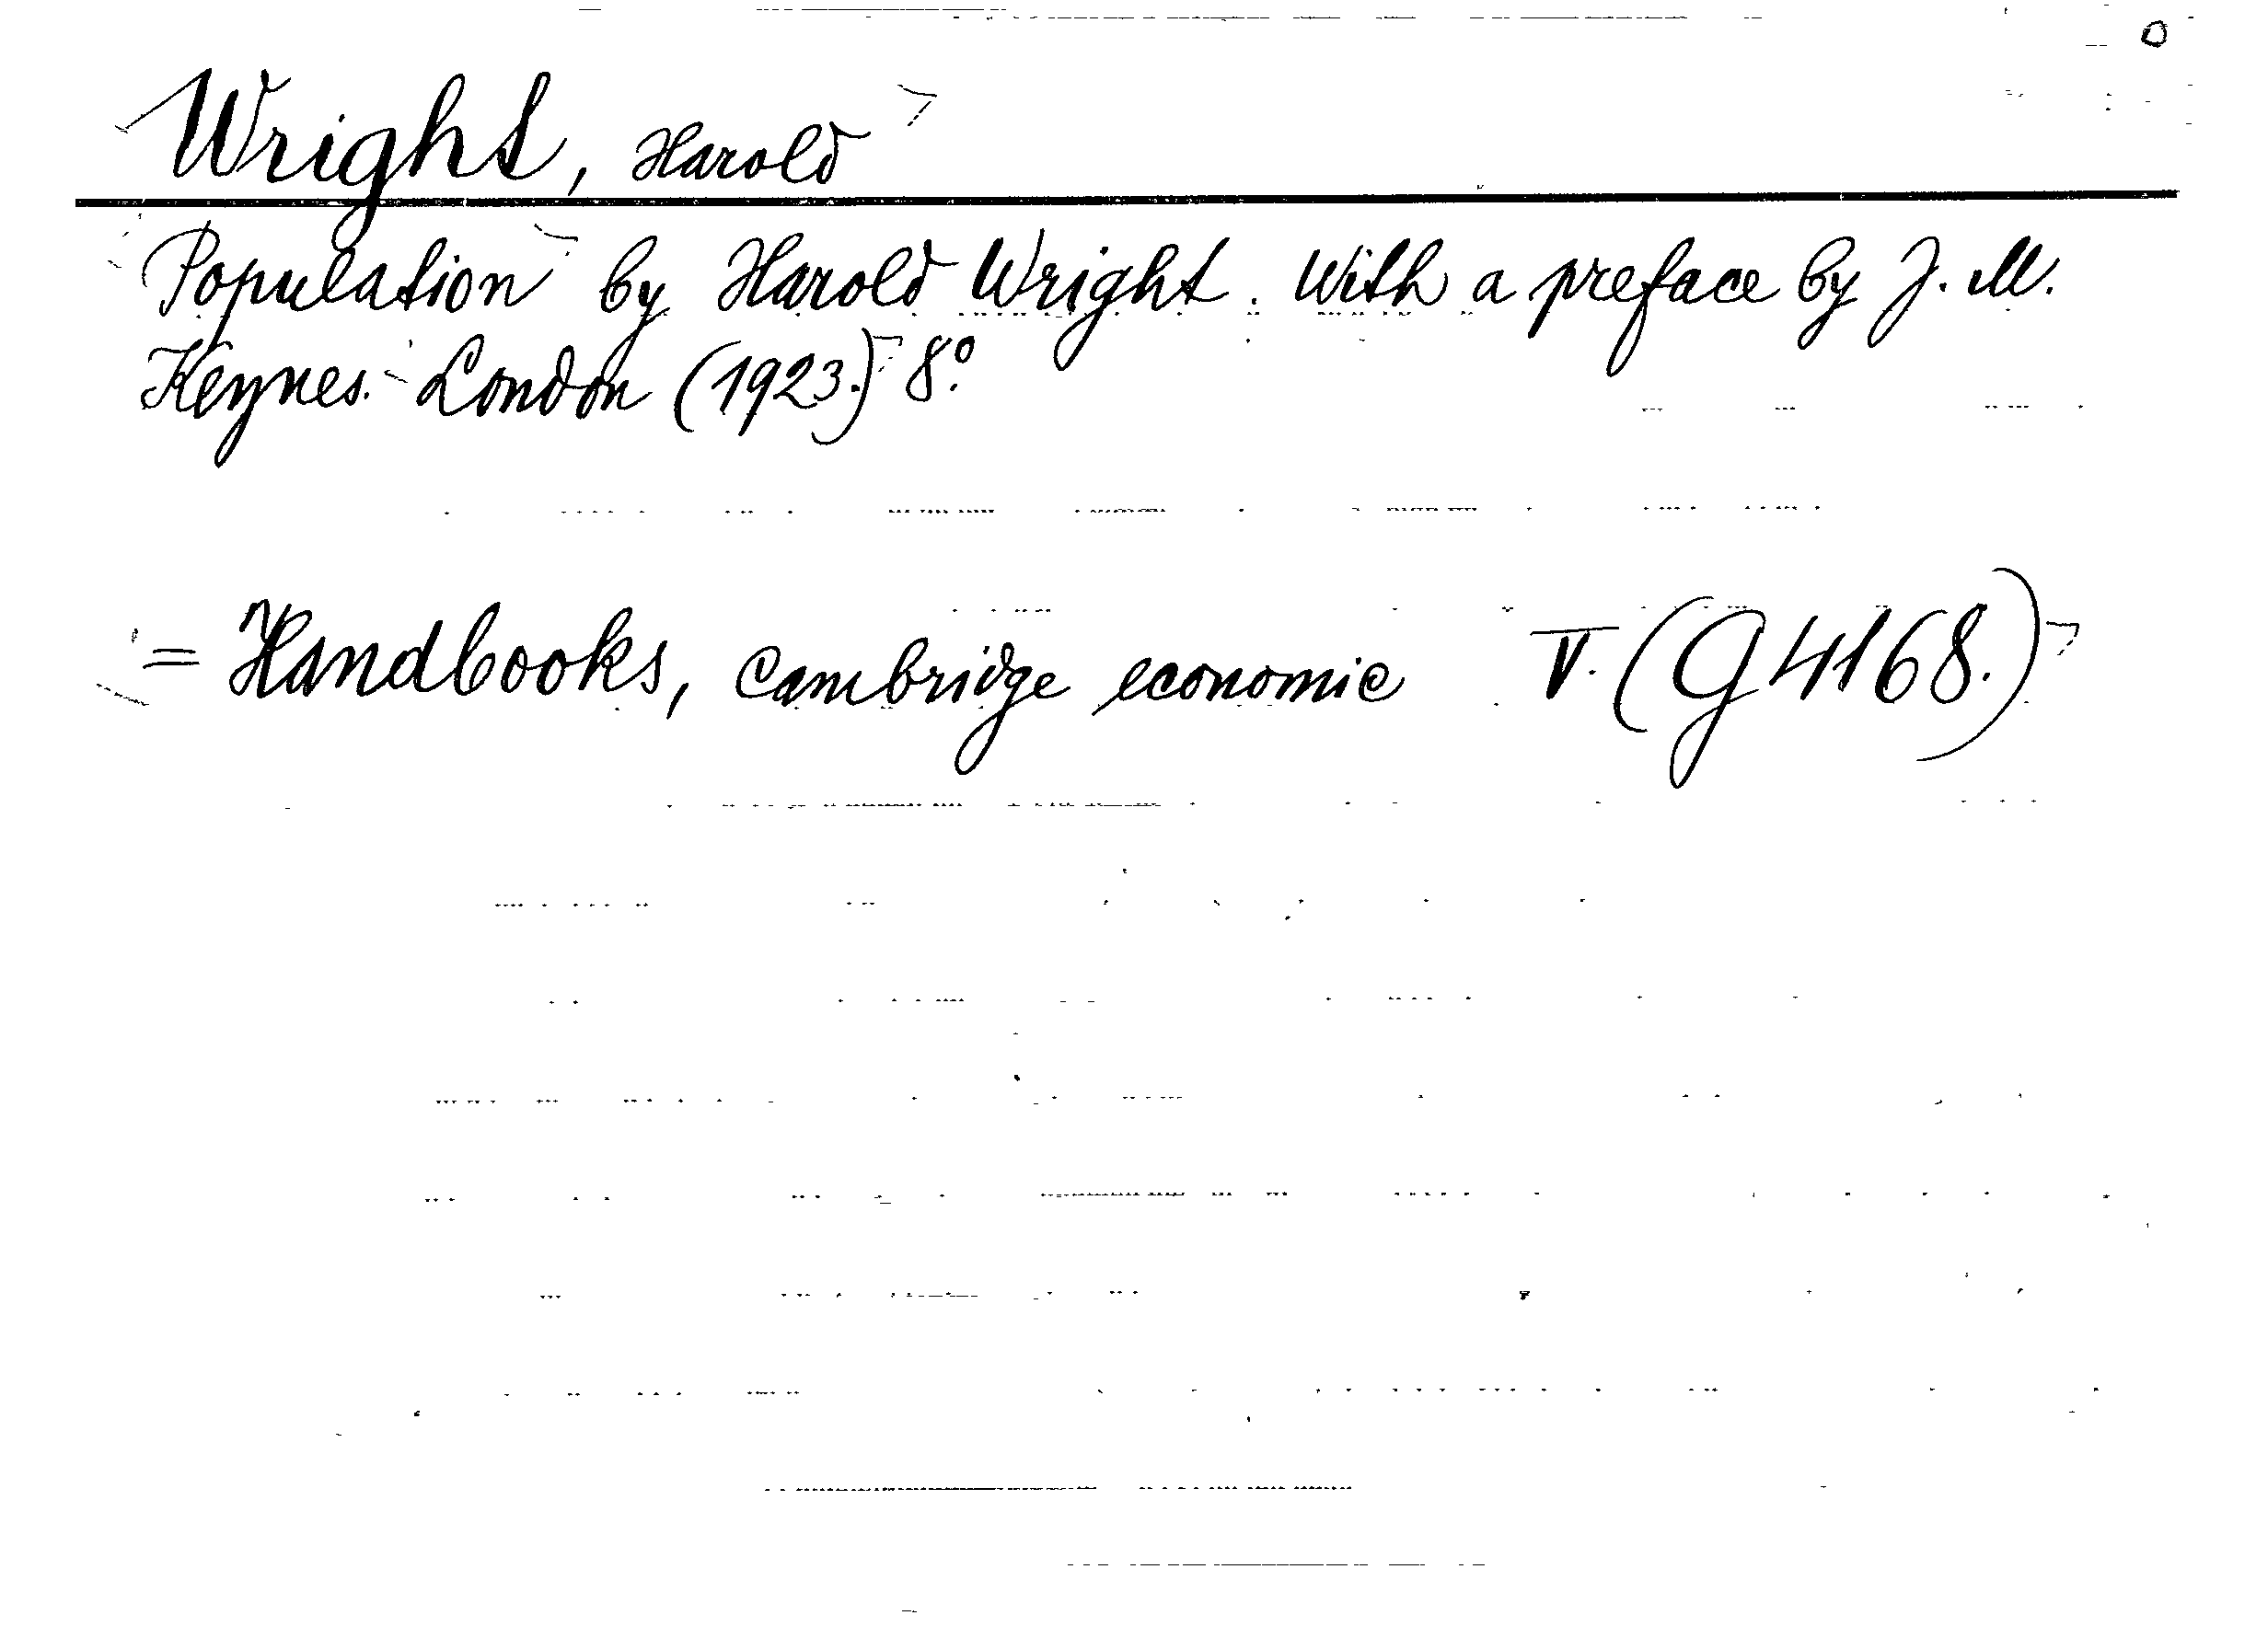 Wright, Harold
Population by Harold Wright. With a preface by J. M.
Keynes. London (1923.) 8°.
= Handbooks, Cambridge economic V. (G 4168.)